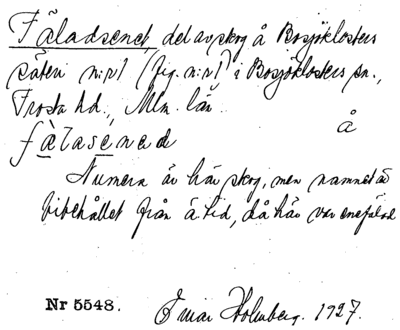 Fäladsenet, del av skog å Bosjöklosters
säteri n:r 1 (fig. n:r 1) i Bosjöklosters sn.,
Frosta hd., Mlm. län.
å
fälasened
Numera är här skog, men namnet är
bibehållet från ä. tid, då här var en fälad
Nr 5548. Einar Holmberg. 1927.